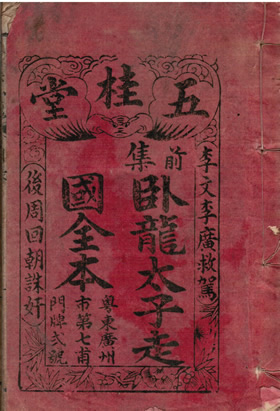 五桂堂
李文李廣救駕
前集
臥龍太子走
國全本
粵東廣州
市第七甫
門牌弍號
後周回朝誅奸